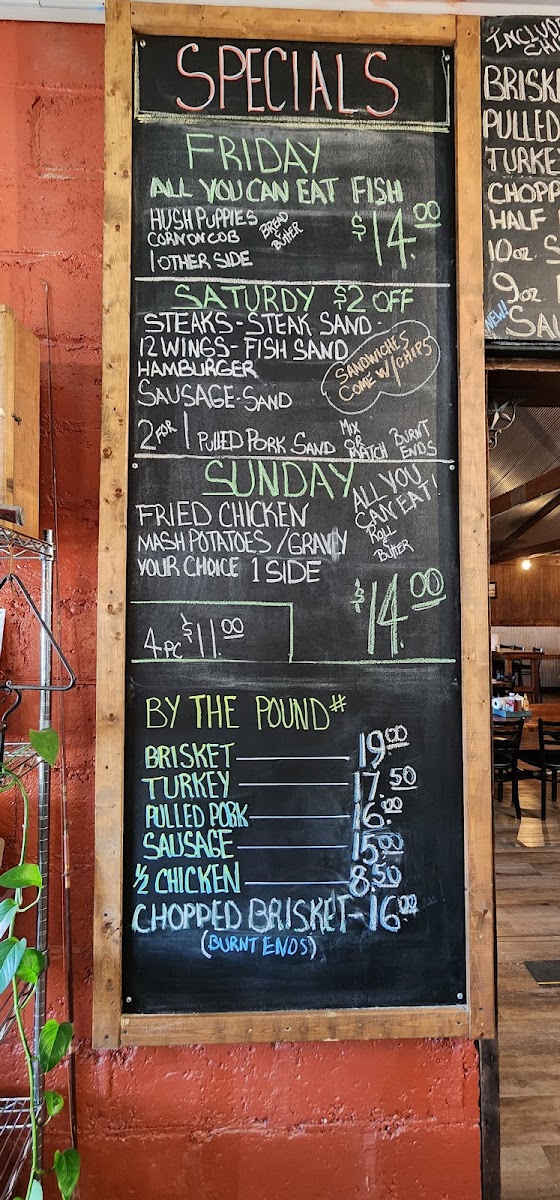 SPECIALS
FRIDAY
ALL YOU CAN EAT FISH
HUSH PUPPIES
CORN ON COB
1 OTHER SIDE
BREAD
&
BUTTER
$14.00
SATURDY $2 OFF
STEAKS - STEAK SAND -
12 WINGS - FISH SAND
HAMBURGER
SAUSAGE - SAND
SANDWICHES
COME W/ CHIPS
2 FOR 1 PULLED PORK SAND
MIX
OR
MATCH
BURNT
ENDS
SUNDAY
FRIED CHICKEN
MASH POTATOES / GRAVY
YOUR CHOICE 1 SIDE
ALL YOU
CAN EAT!
ROLL
&
BUTTER
$14.00
4 PC $11.00
BY THE POUND #
BRISKET — 19.00
TURKEY — 17.50
PULLED PORK — 16.00
SAUSAGE — 15.00
1/2 CHICKEN — 8.50
CHOPPED BRISKET - 16.00
(BURNT ENDS)
PULLED
HALF
10 OZ.
9 OZ.
NEW!